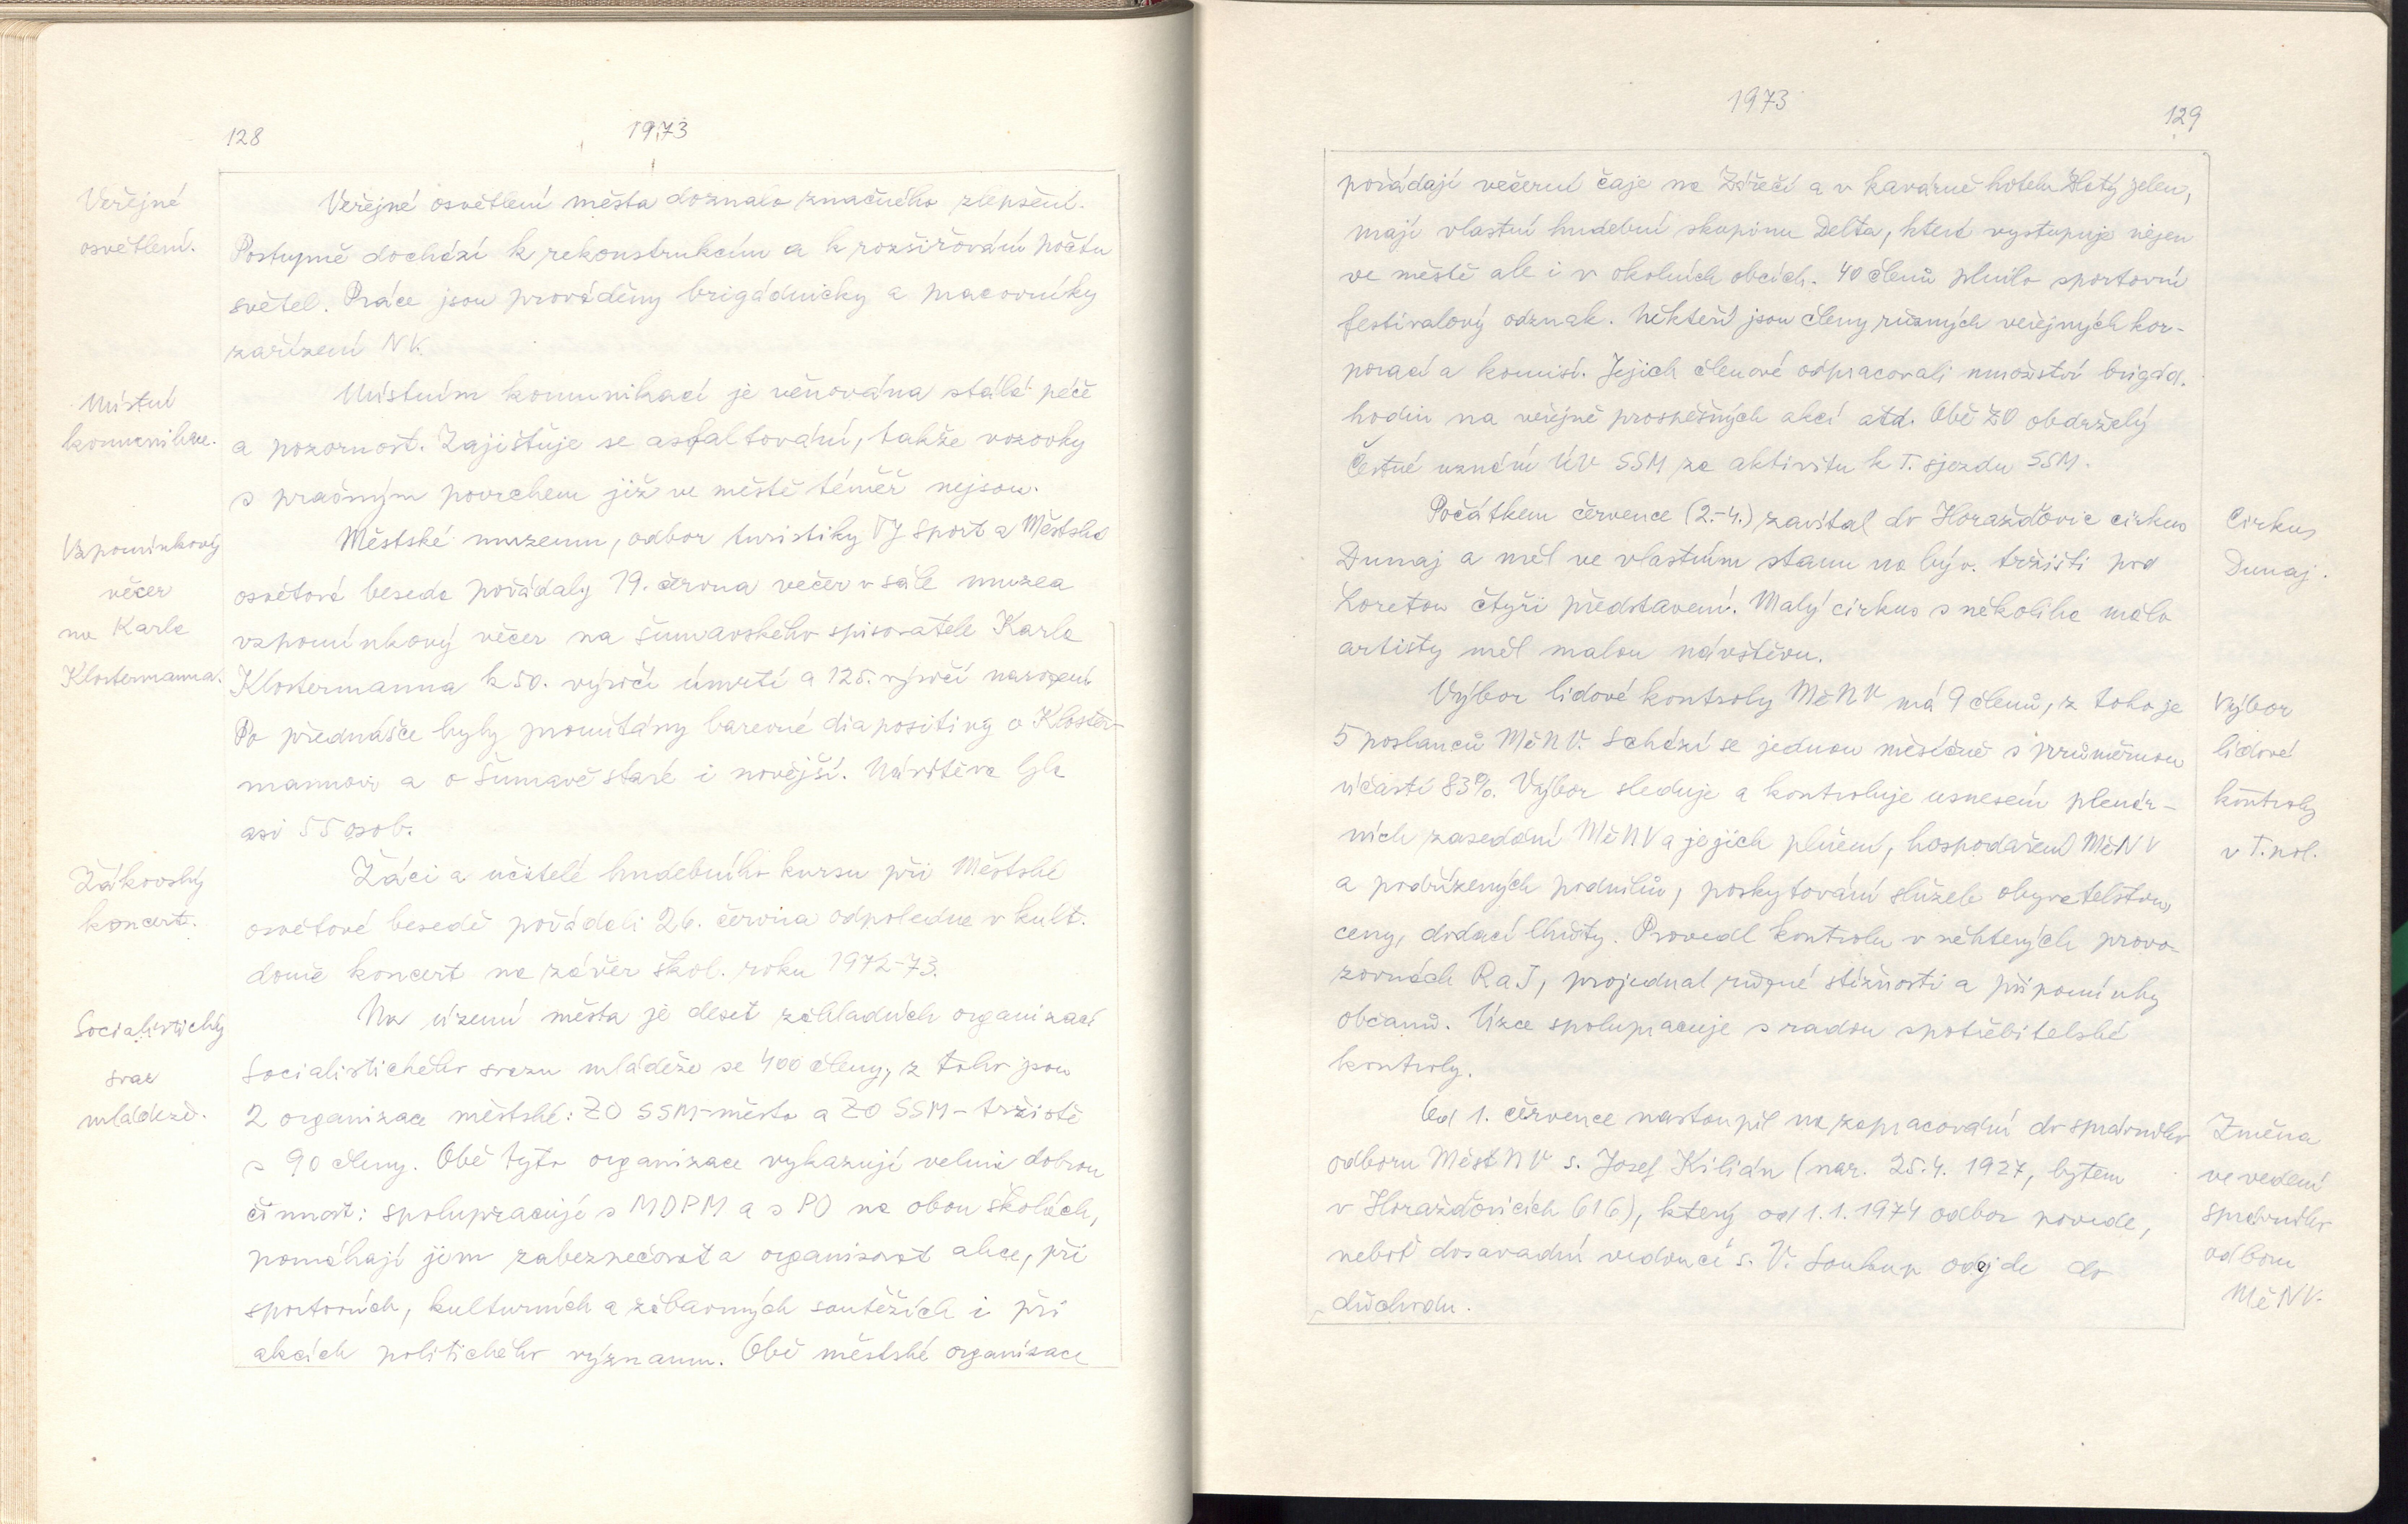 128
1973
Veřejné
osvětlení.
Veřejné osvětlení města doznalo značného zlepšení.
Postupně dochází k rekonstrukcím a k rozšiřování počtu
světel. Práce jsou prováděny brigádnicky a pracovníky
zařízení NV.
Místní
komunikace.
Místním komunikací je věnována stálá péče
a pozornost. Zajištuje se asfaltování, takže vozovky
s prašným povrchem již ve městě téměř nejsou.
Vzpomínkový
večer
na Karla
Klostermanna.
Městské muzeum, odbor turistiky TJ Sport a Městská
osvětová beseda pořádaly 19. června večer v sále muzea
vzpomínkový večer na šumavského spisovatele Karla
Klostermanna k 50. výročí úmrtí a 125. výročí narození
Po přednášce byly promítány barevné diapositivy o Kloster-
mannovi a o Šumavě staré i novější. Návštěva byla
asi 55 osob.
Žákovský
koncert.
Žáci a učitelé hudebního kursu při Městské
osvětové besedě pořádali 26. června odpoledne v kult.
domě koncert na závěr škol. roku 1972-73.
Socialistický
svaz
mládeže.
Na území města je deset základních organizací
Socialistického svazu mládeže se 400 členy, z toho jsou
2 organizace městské: ZO SSM-město a ZO SSM-tržiště
s 90 členy. Obě tyto organizace vykazují velmi dobrou
činnost: spolupracují s MDPM a s PO na obou školách,
pomáhají jim zabezpečovat a organisovat akce, při
sportovních, kulturních a zábavných soutěžích i při
akcích politického významu. Obě městské organizace
1973
129
pořádají večerní čaje na Zářečí a v kavárně hotelu Zlatý jelen,
mají vlastní hudební skupinu Delta, která vystupuje nejen
ve městě ale i v okolních obcích. 40 členů plnilo sportovní
festivalový odznak. Někteří jsou členy různých veřejných kor-
porací a komisí. Jejich členové odpracovali množství brigád.
hodin na veřejně prospěšných akcí atd. Obě ZO obdržely
Čestné uznání ÚV SSM za aktivitu k I. sjezdu SSM.
Počátkem července (2.-4.) zavítal do Horažďovic cirkus
Dunaj a měl ve vlastním stanu na býv. tržišti pod
Loretou čtyři představení. Malý cirkus s několika málo
artisty měl malou návštěvu.
Cirkus
Dunaj.
Výbor lidové kontroly MěNV má 9 členů, z toho je
5 poslanců MěNV. Schází se jednou měsíčně s průměrnou
účastí 83%. Výbor sleduje a kontroluje usnesení plenár-
ních zasedání MěNV a jejich plnění, hospodaření MěNV
a podřízených podniků, poskytování služeb obyvatelstvu,
ceny, dodací lhůty. Provedl kontrolu v některých provo-
zovnách RaJ, projednal různé stížnosti a připomínky
občanů. Úzce spolupracuje s radou spotřebitelské
kontroly.
Výbor
lidové
kontroly
v I. pol.
Od 1. července nastoupil na zapracování do správního
odboru MěstNV s. Josef Kilián (nar. 25.4. 1927, bytem
v Horažďovicích 616), který od 1.1.1974 odbor povede,
neboť dosavadní vedoucí s. V. Soukup odejde do
důchodu.
Změna
ve vedení
správního
odboru
MěNV.